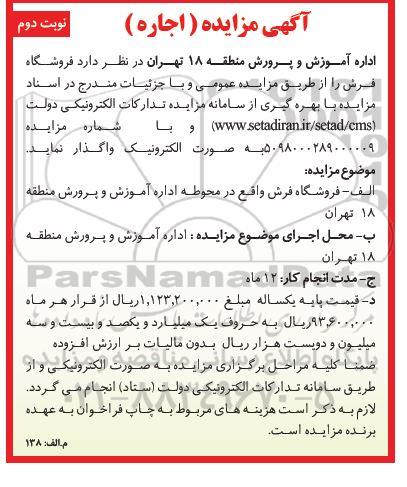 آگهی مزایده ( اجاره )
نوبت دوم
اداره آمـوزش و پـرورش منطقـه ۱۸ تهـران در نظـر دارد فروشـگاه
فـرش را از طریـق مزایـده عمومـی و بـا جزئیـات منـدرج در اسـناد
مزایـده بـا بهـره گیـری از سـامانه مزایـده تـدارکات الکترونیکـی دولـت
(www.setadiran.ir/setad/cms) و بـا شـماره مزایـده
۵۰۹۸۰۰۰۲۸۹۰۰۰۰۰۹به صـورت الکترونیـک واگـذار نمایـد.
موضوع مزایده:
الـف- فروشـگاه فرش واقـع در محوطـه اداره آمـوزش و پـرورش منطقه
۱۸ تهران
ب- محـل اجـرای موضـوع مزایـده : اداره آمـوزش و پـرورش منطقـه
۱۸ تهـران
ج- مدت انجام کار: ۱۲ ماه
د- قیمـت پایـه یکسـاله مبلـغ ۱,۱۲۳,۲۰۰,۰۰۰ریـال از قـرار هـر مـاه
۹۳,۶۰۰,۰۰۰ریـال به حـروف یـک میلیـارد و یکصـد و بیسـت و سـه
میلیـون و دویسـت هـزار ریـال بـدون مالیـات بـر ارزش افـزوده
ضمنـا کلیـه مراحـل برگـزاری مزایـده به صـورت الکترونیکـی و از
طریـق سـامانه تـدارکات الکترونیکـی دولـت (سـتاد) انجـام مـی گـردد.
لازم بـه ذکـر اسـت هزینـه هـای مربـوط بـه چـاپ فراخـوان بـه عهـده
برنده مزایـده اسـت.
م.الف: ۱۳۸
ParsNamadData
۰۲۱-۸۸۳۴۹۶۷۰-۵